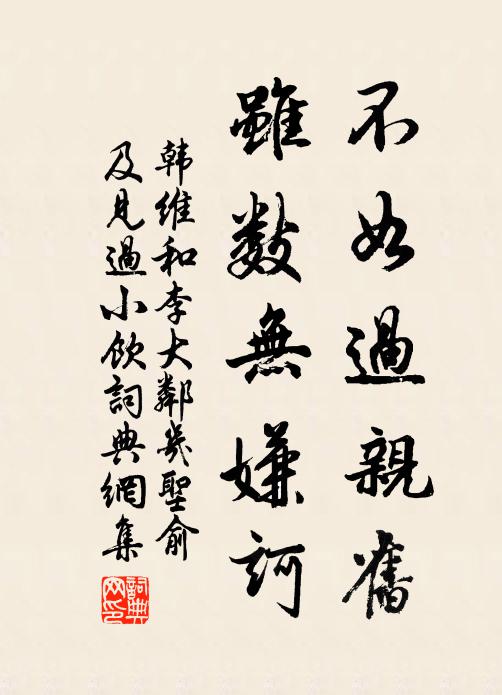 不如過親舊
雖數無嫌訶
韩維和李大鄰幾聖俞
及見過小飲詞典網集
詞典网印